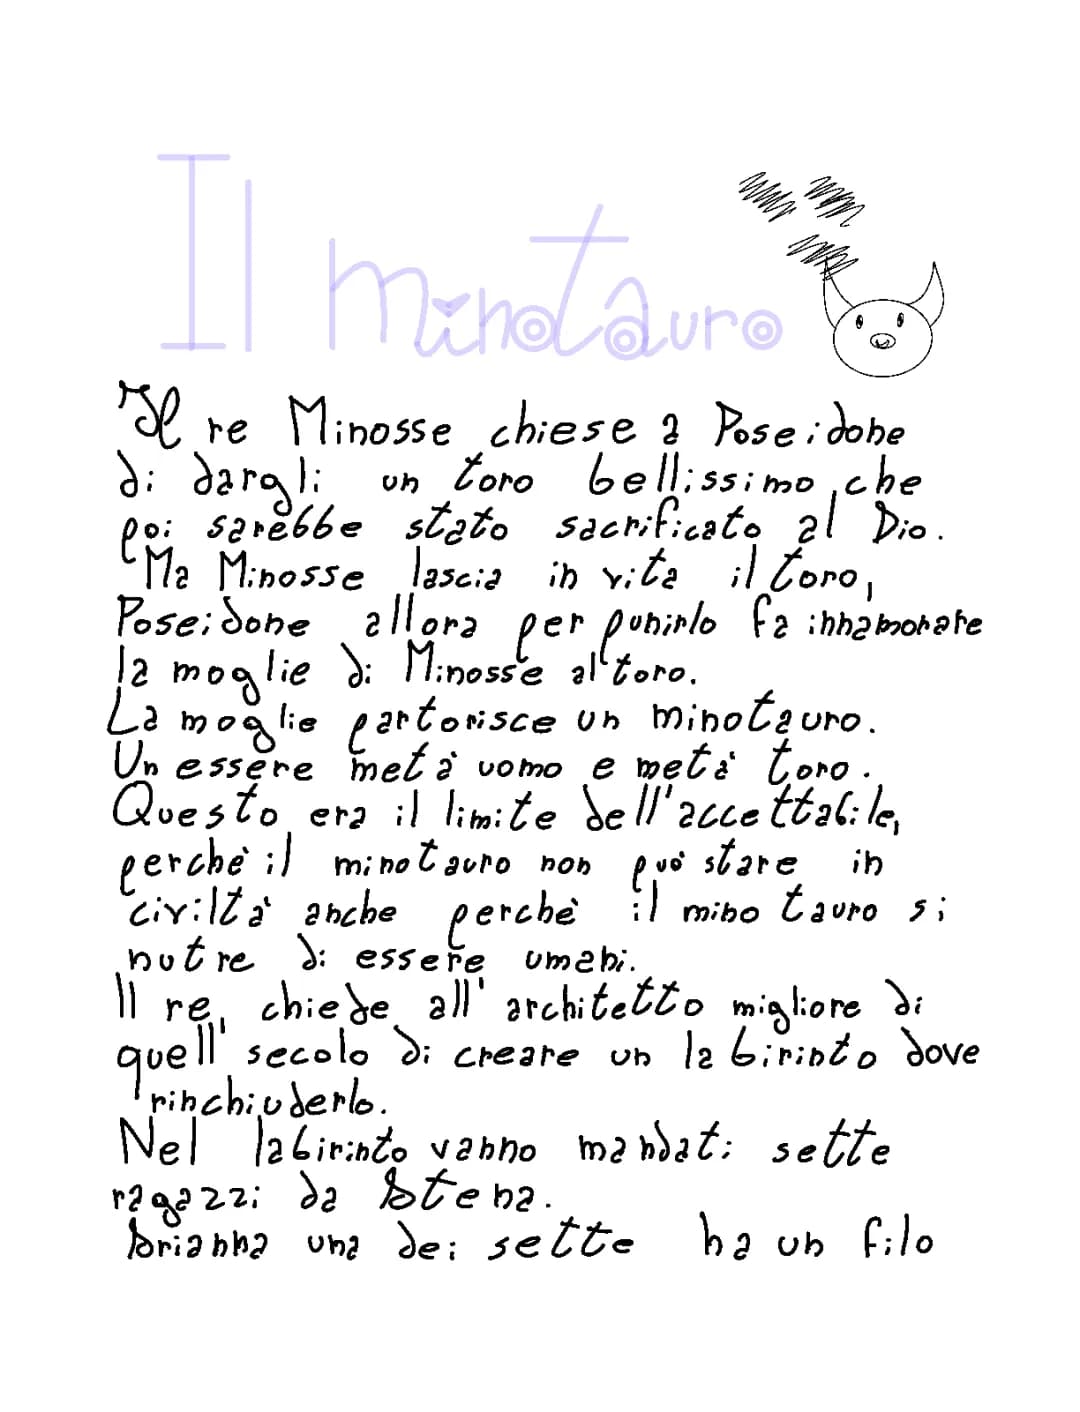 Il minotauro
Il re Minosse chiese a Poseidone
di dargli un toro bellissimo, che
poi sarebbe stato sacrificato al Dio.
Ma Minosse lascia in vita il toro,
Poseidone allora per punirlo fa innamorare
la moglie di Minosse al toro.
La moglie partorisce un minotauro.
Un essere metà uomo e metà toro.
Questo era il limite dell'accettabile,
perchè il minotauro non può stare in
civiltà anche perchè il minotauro si
nutre di essere umani.
Il re, chiede all'architetto migliore di
quell' secolo di creare un labirinto dove
rinchiuderlo.
Nel labirinto vanno mandati sette
ragazzi da Atena.
Arianna una dei sette ha un filo